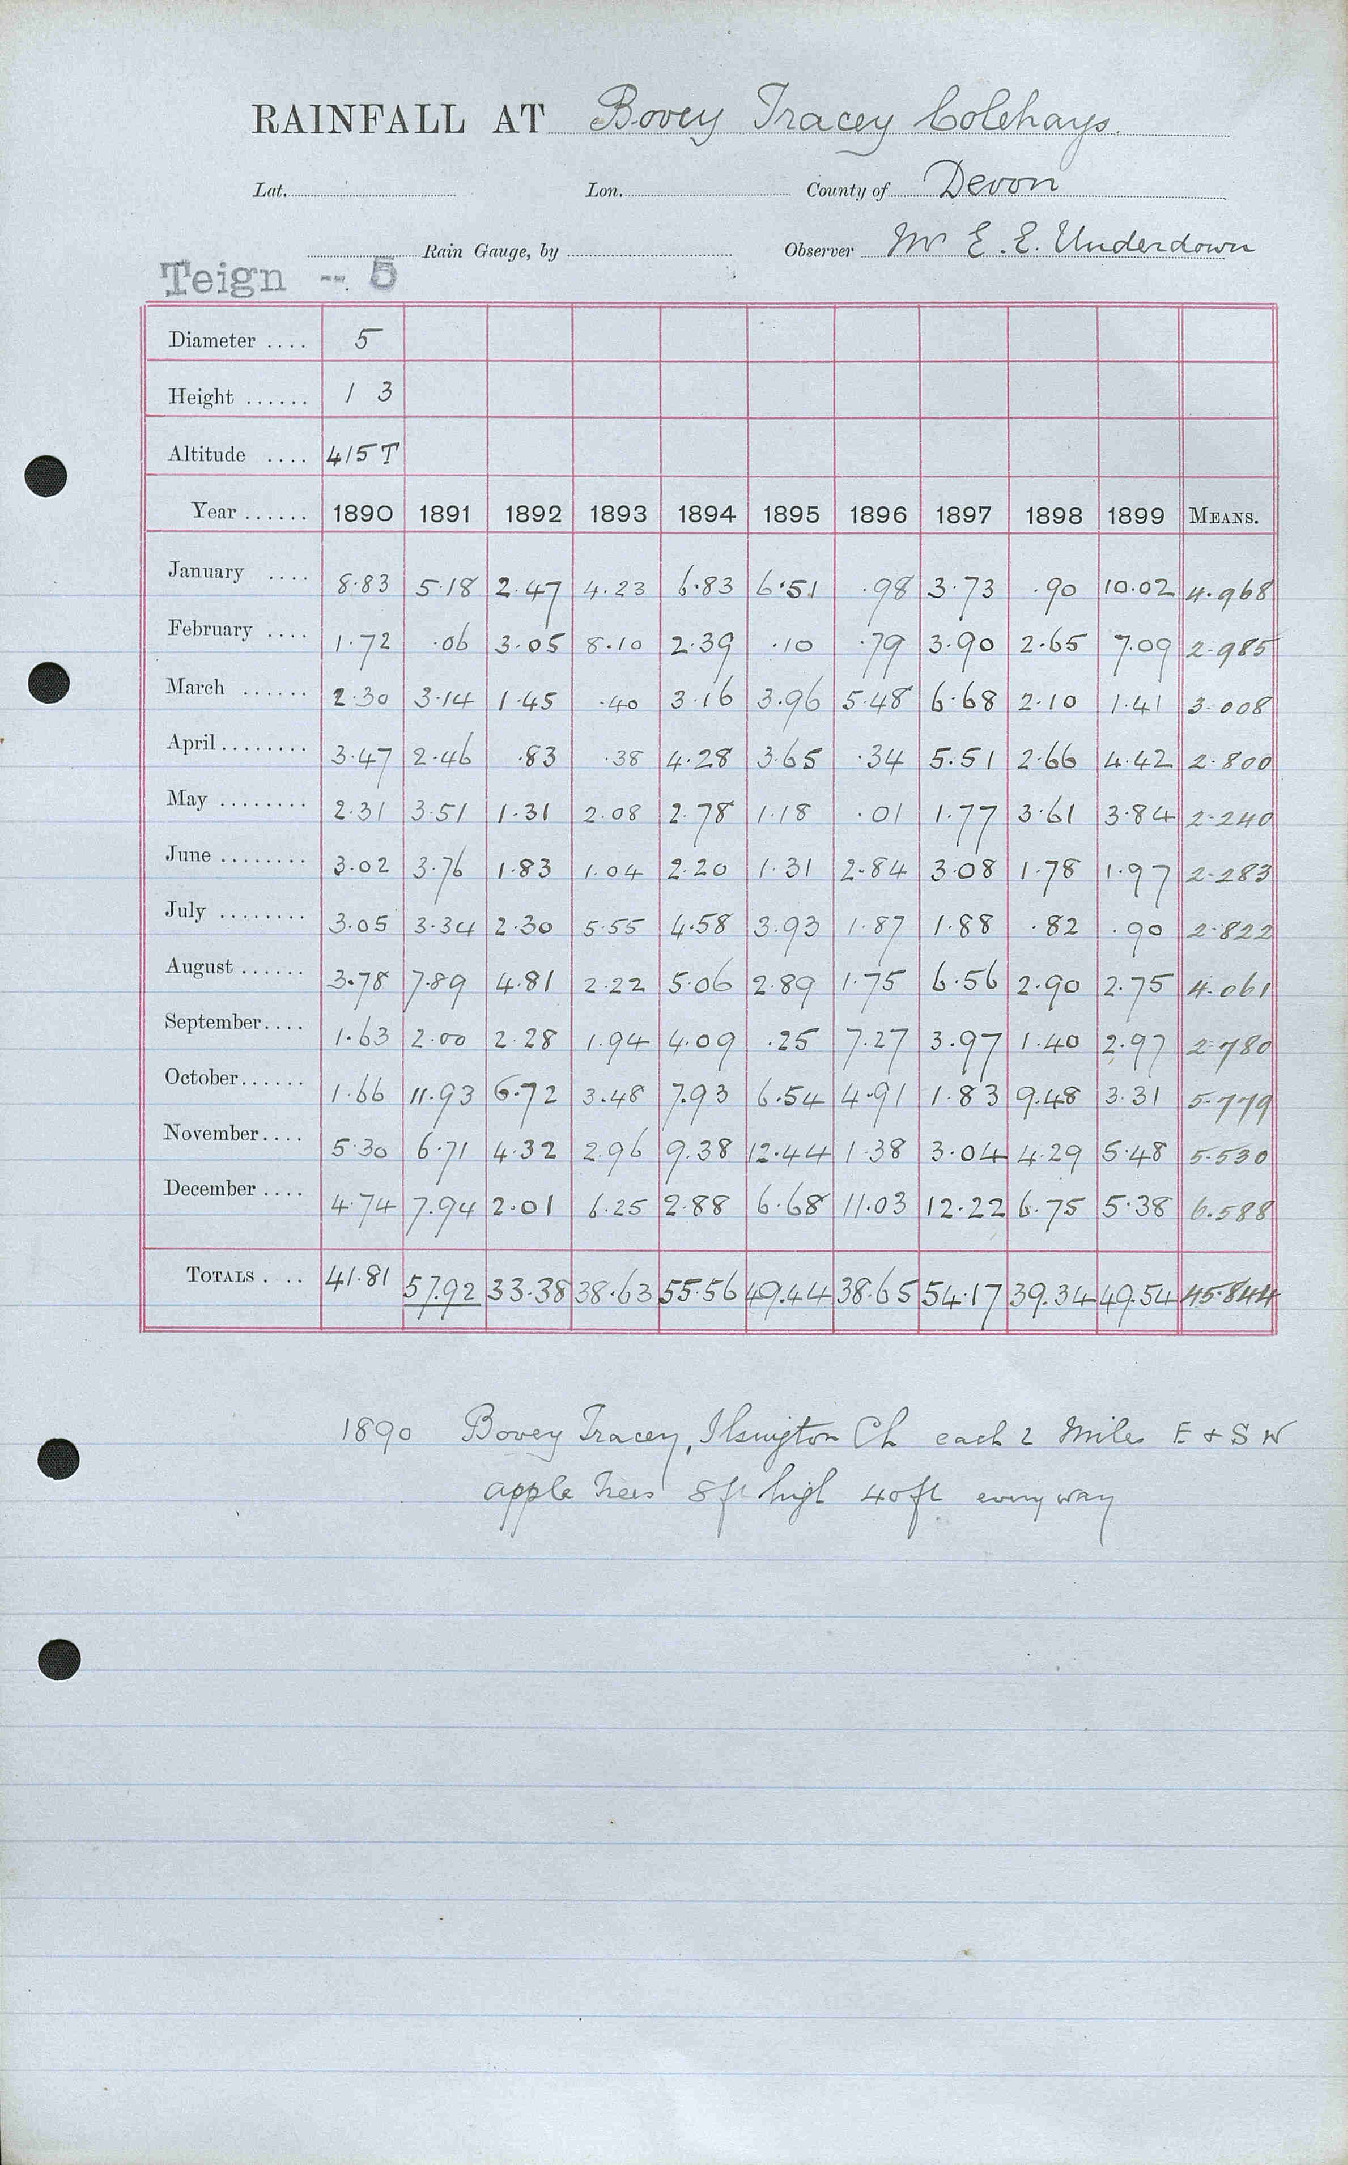 RAINFALL AT Bovey Tracey Colehays.
Lat. Lon. County of Devon
Rain Gauge, by Observer Mr E. E. Underdown
Teign -- 5
Diameter .... 5
Height ...... 1 3
Altitude .... 415 T
Year ...... 1890 1891 1892 1893 1894 1895 1896 1897 1898 1899 MEANS.
January .... 8.83 5.18 2.47 4.23 6.83 6.51 .98 3.73 .90 10.02 4.968
February .... 1.72 .06 3.05 8.10 2.39 .10 .79 3.90 2.65 7.09 2.985
March ...... 2.30 3.14 1.45 .40 3.16 3.96 5.48 6.68 2.10 1.41 3.008
April ........ 3.47 2.46 .83 .38 4.28 3.65 .34 5.51 2.66 4.42 2.800
May ........ 2.31 3.51 1.31 2.08 2.78 1.18 .01 1.77 3.61 3.84 2.240
June ........ 3.02 3.76 1.83 1.04 2.20 1.31 2.84 3.08 1.78 1.97 2.283
July ........ 3.05 3.34 2.30 5.55 4.58 3.93 1.87 1.88 .82 .90 2.822
August ...... 3.78 7.89 4.81 2.22 5.06 2.89 1.75 6.56 2.90 2.75 4.061
September .... 1.63 2.00 2.28 1.94 4.09 .25 7.27 3.97 1.40 2.97 2.780
October ...... 1.66 11.93 6.72 3.48 7.93 6.54 4.91 1.83 9.48 3.31 5.779
November .... 5.30 6.71 4.32 2.96 9.38 12.44 1.38 3.04 4.29 5.48 5.530
December .... 4.74 7.94 2.01 6.25 2.88 6.68 11.03 12.22 6.75 5.38 6.588
TOTALS . .. 41.81 57.92 33.38 38.63 55.56 49.44 38.65 54.17 39.34 49.54 45.844
1890 Bovey Tracey, Ilsington Ch each 2 Miles E + S W
apple trees 8 ft high 40 ft every way